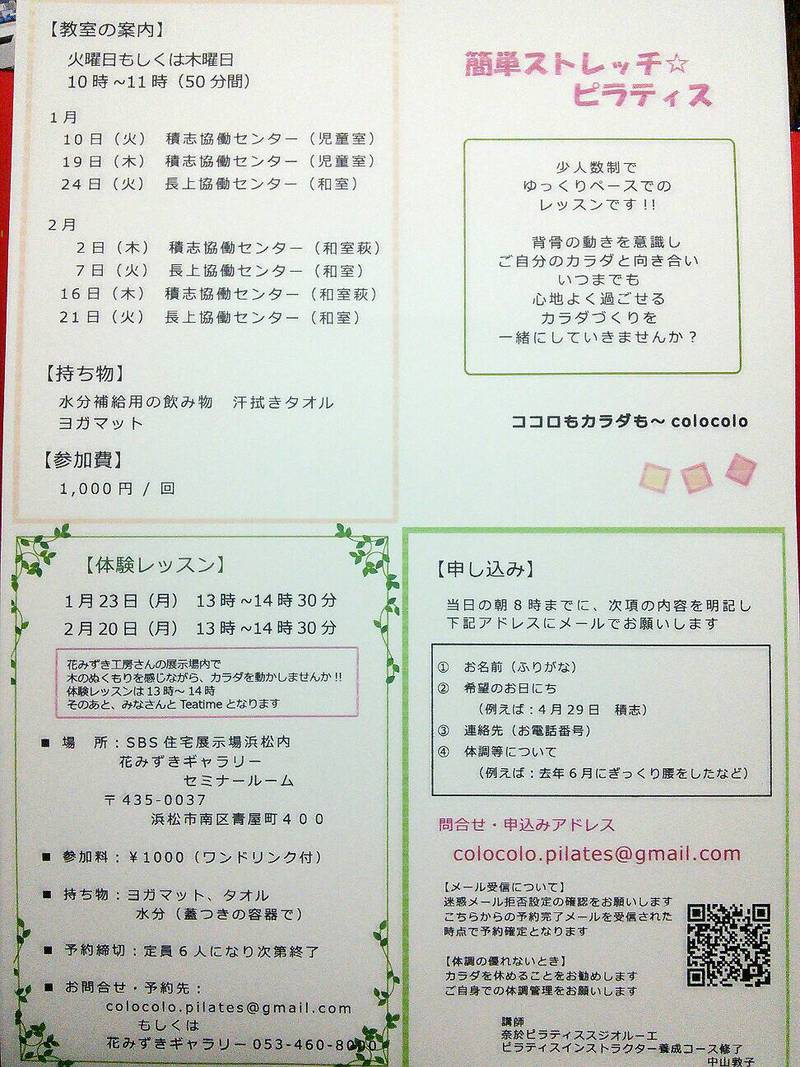 【教室の案内】
火曜日もしくは木曜日
10時~11時（50分間）
1月
10日（火） 積志協働センター（児童室）
19日（木） 積志協働センター（児童室）
24日（火） 長上協働センター（和室）
2月
2日（木） 積志協働センター（和室萩）
7日（火） 長上協働センター（和室）
16日（木） 積志協働センター（和室萩）
21日（火） 長上協働センター（和室）
【持ち物】
水分補給用の飲み物　汗拭きタオル
ヨガマット
【参加費】
1,000円 / 回
簡単ストレッチ☆
ピラティス
少人数制で
ゆっくりペースでの
レッスンです!!
背骨の動きを意識し
ご自分のカラダと向き合い
いつまでも
心地よく過ごせる
カラダづくりを
一緒にしていきませんか？
ココロもカラダも～colocolo
【体験レッスン】
1月23日（月） 13時~14時30分
2月20日（月） 13時~14時30分
花みずき工房さんの展示場内で
木のぬくもりを感じながら、カラダを動かしませんか!!
体験レッスンは13時～14時
そのあと、みなさんとTeatimeとなります
■ 場　所：SBS住宅展示場浜松内
花みずきギャラリー
セミナールーム
〒435-0037
浜松市南区青屋町４００
■ 参加料：￥1000（ワンドリンク付）
■ 持ち物：ヨガマット、タオル
水分（蓋つきの容器で）
■ 予約締切：定員6人になり次第終了
■ お問合せ・予約先：
colocolo.pilates@gmail.com
もしくは
花みずきギャラリー053-460-8000
【申し込み】
当日の朝8時までに、次項の内容を明記し
下記アドレスにメールでお願いします
① お名前（ふりがな）
② 希望のお日にち
（例えば：4月29日　積志）
③ 連絡先（お電話番号）
④ 体調等について
（例えば：去年6月にぎっくり腰をしたなど）
問合せ・申込みアドレス
colocolo.pilates@gmail.com
【メール受信について】
迷惑メール拒否設定の確認をお願いします
こちらからの予約完了メールを受信された
時点で予約確定となります
【体調の優れないとき】
カラダを休めることをお勧めします
ご自身での体調管理をお願いします
講師
奈於ピラティススジオルーエ
ピラティスインストラクター養成コース修了
中山敦子